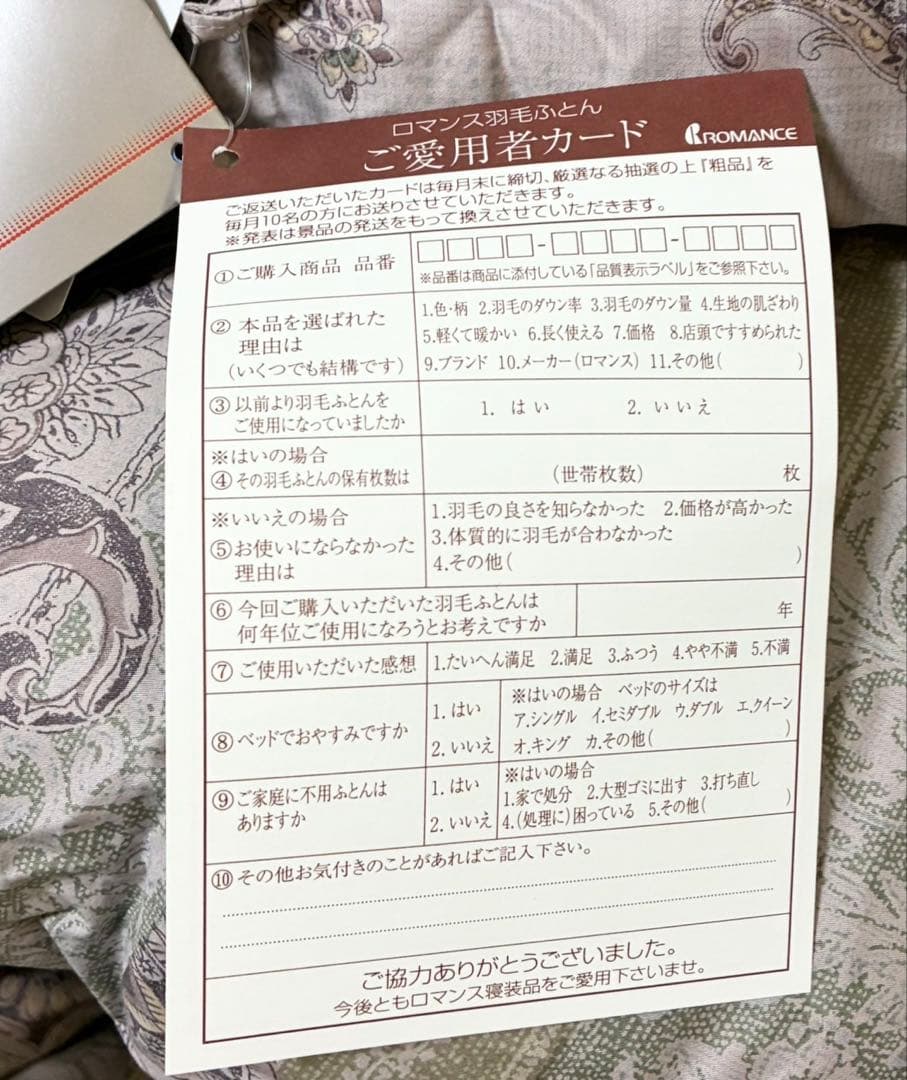 ロマンス羽毛ふとん
ご愛用者カード
ROMANCE
ご返送いただいたカードは毎月末に締切、厳選なる抽選の上『粗品』を
毎月10名の方にお送りさせていただきます。
※発表は景品の発送をもって換えさせていただきます。
①ご購入商品 品番
□□□□-□□□□-□□□□
※品番は商品に添付している「品質表示ラベル」をご参照下さい。
②本品を選ばれた
理由は
(いくつでも結構です)
1.色・柄 2.羽毛のダウン率 3.羽毛のダウン量 4.生地の肌ざわり
5.軽くて暖かい 6.長く使える 7.価格 8.店頭ですすめられた
9.ブランド 10.メーカー(ロマンス) 11.その他( )
③以前より羽毛ふとんを
ご使用になっていましたか
1. はい 2. いいえ
※はいの場合
④その羽毛ふとんの保有枚数は
(世帯枚数) 枚
※いいえの場合
⑤お使いにならなかった
理由は
1.羽毛の良さを知らなかった 2.価格が高かった
3.体質的に羽毛が合わなかった
4.その他( )
⑥今回ご購入いただいた羽毛ふとんは
何年位ご使用になろうとお考えですか
年
⑦ご使用いただいた感想
1.たいへん満足 2.満足 3.ふつう 4.やや不満 5.不満
⑧ベッドでおやすみですか
1. はい
2. いいえ
※はいの場合 ベッドのサイズは
ア.シングル イ.セミダブル ウ.ダブル エ.クイーン
オ.キング カ.その他( )
⑨ご家庭に不用ふとんは
ありますか
1. はい
2. いいえ
※はいの場合
1.家で処分 2.大型ゴミに出す 3.打ち直し
4.(処理に)困っている 5.その他( )
⑩その他お気付きのことがあればご記入下さい。
ご協力ありがとうございました。
今後ともロマンス寝装品をご愛用下さいませ。